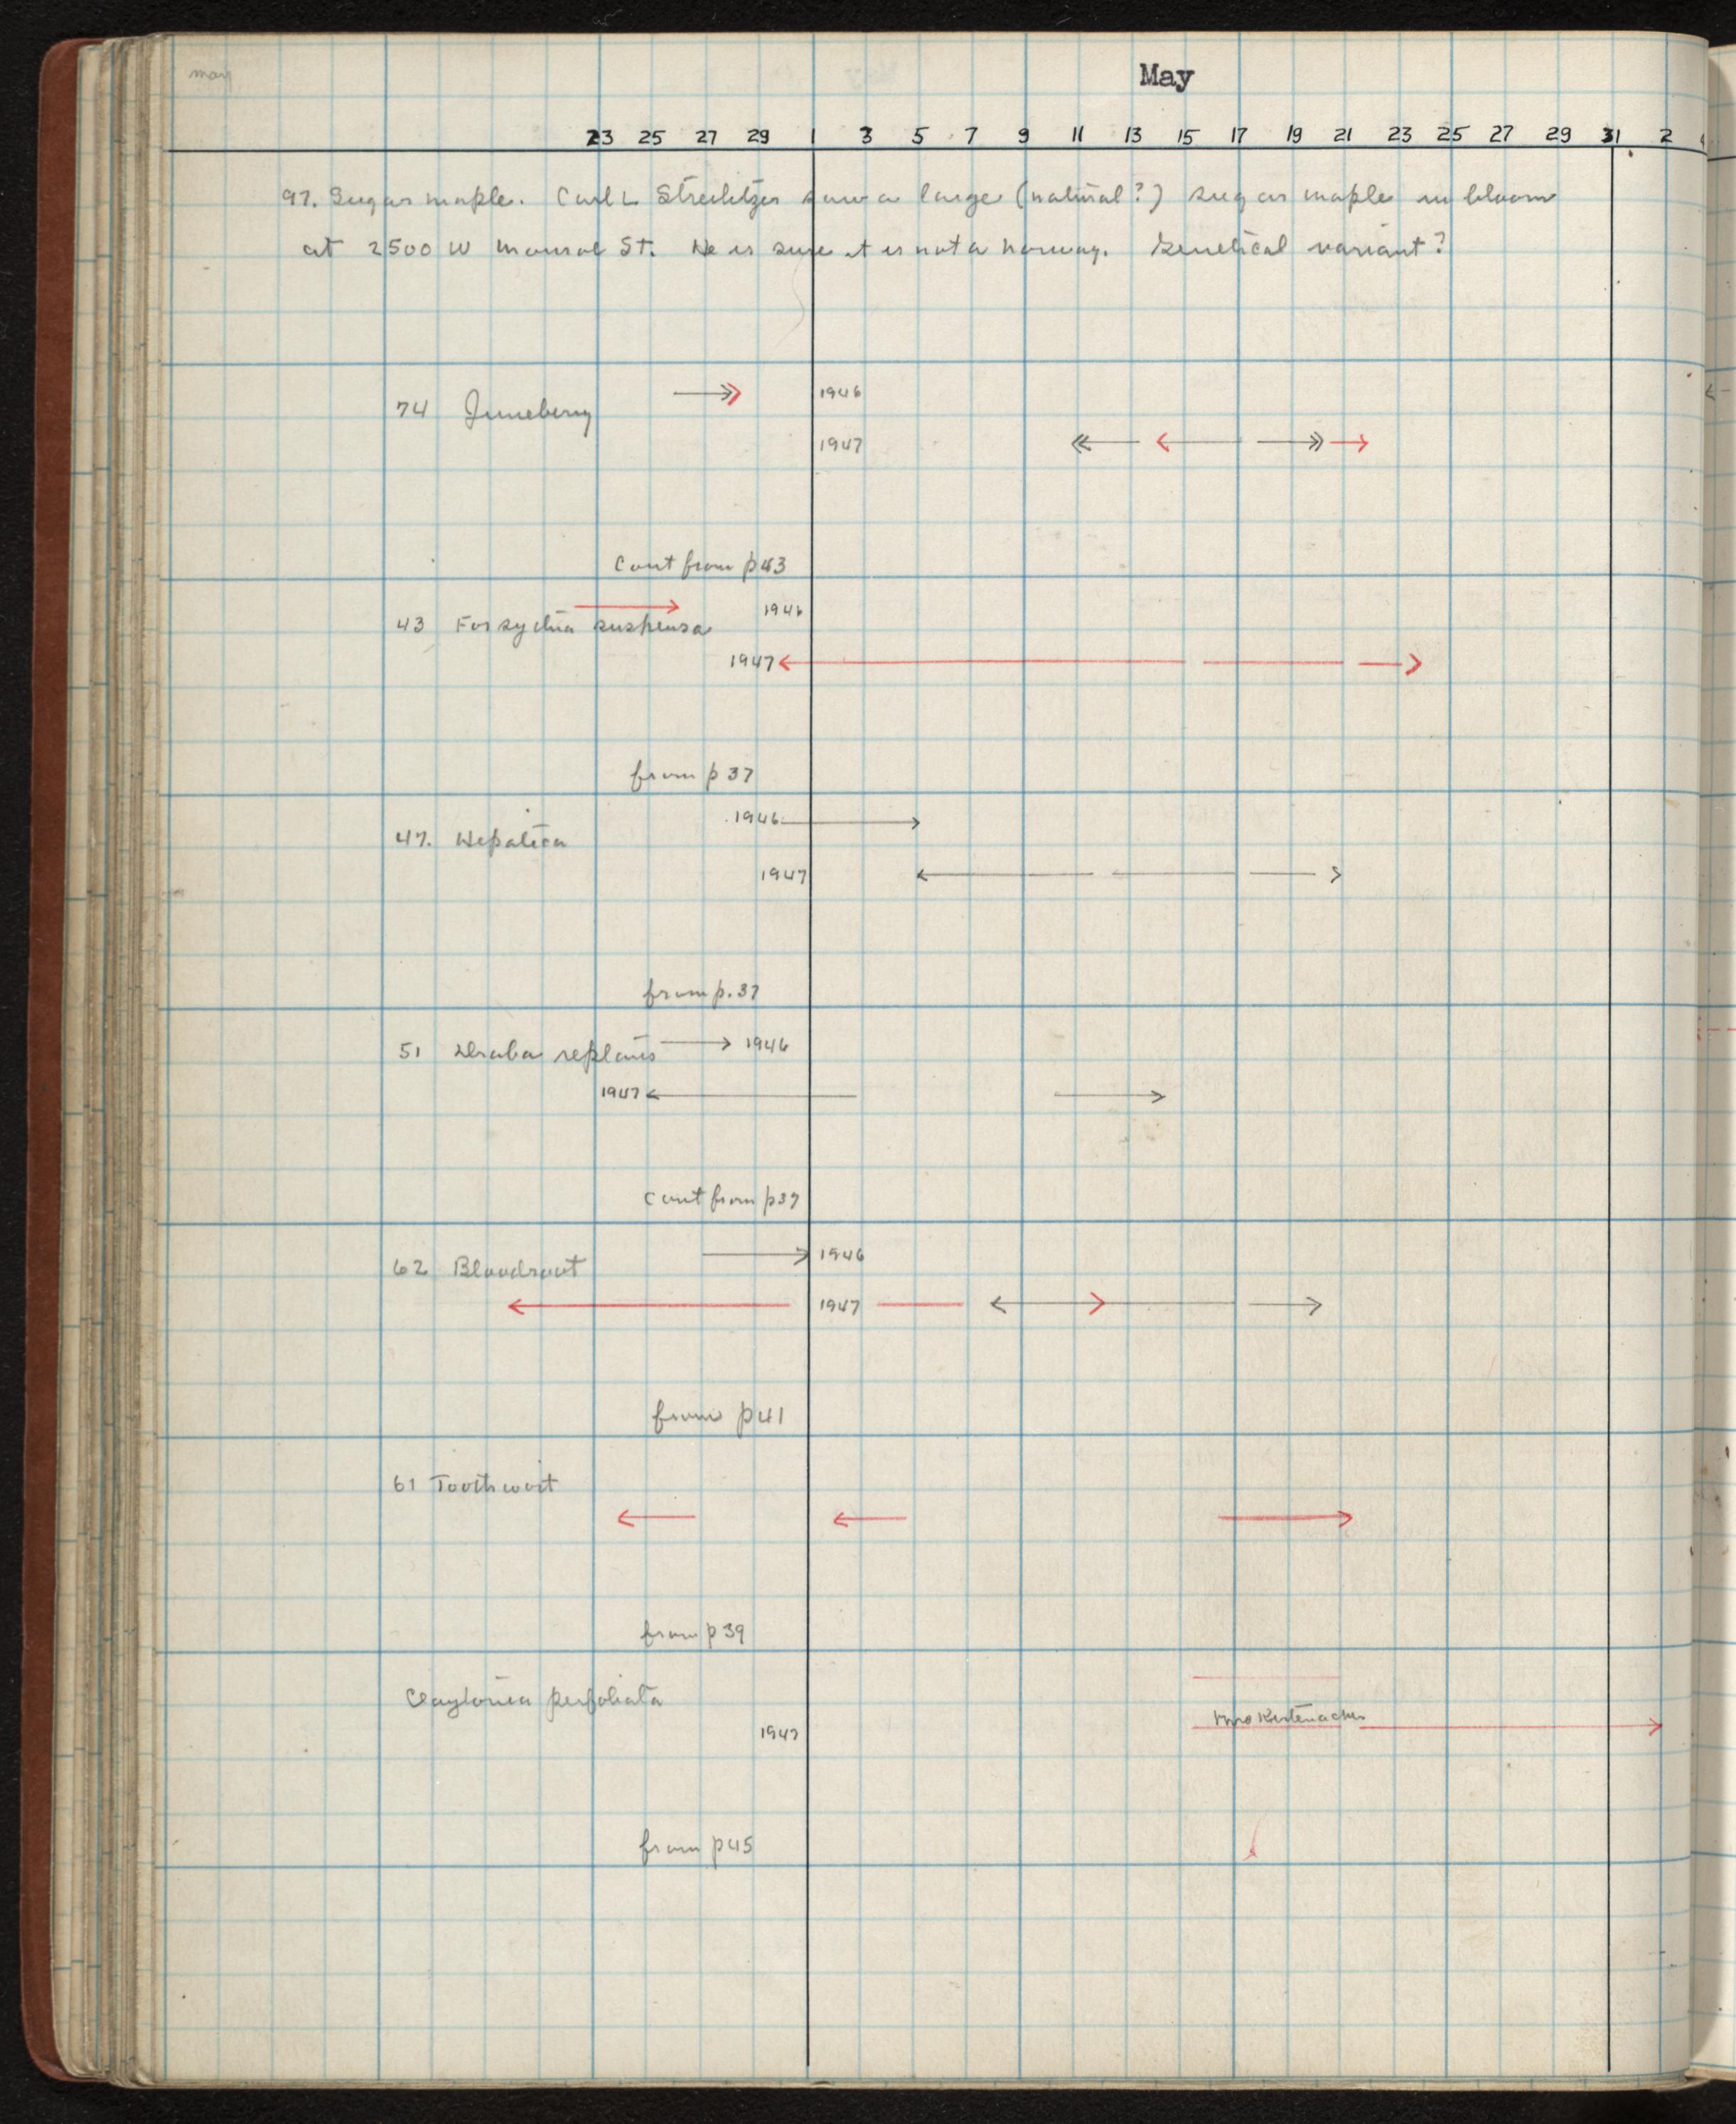 may
May
23 25 27 29 1 3 5 7 9 11 13 15 17 19 21 23 25 27 29 31 2
97. Sugar maple. Carl L saw a large (natural?) sugar maple in bloom
at 2500 W Monroe St. He is sure it is not a norway. Genetical variant?
1946
74 Juneberry
1947
Cont from p 43
1946
43 Forsythia suspensa
1947
from p 37
1946
47. Hepatica
1947
from p. 37
51 Draba reptans 1946
1947
Cont from p37
1946
62 Bloodroot
1947
from p41
61 Toothwort
from p 39
Claytonia perfoliata
1947
from p45